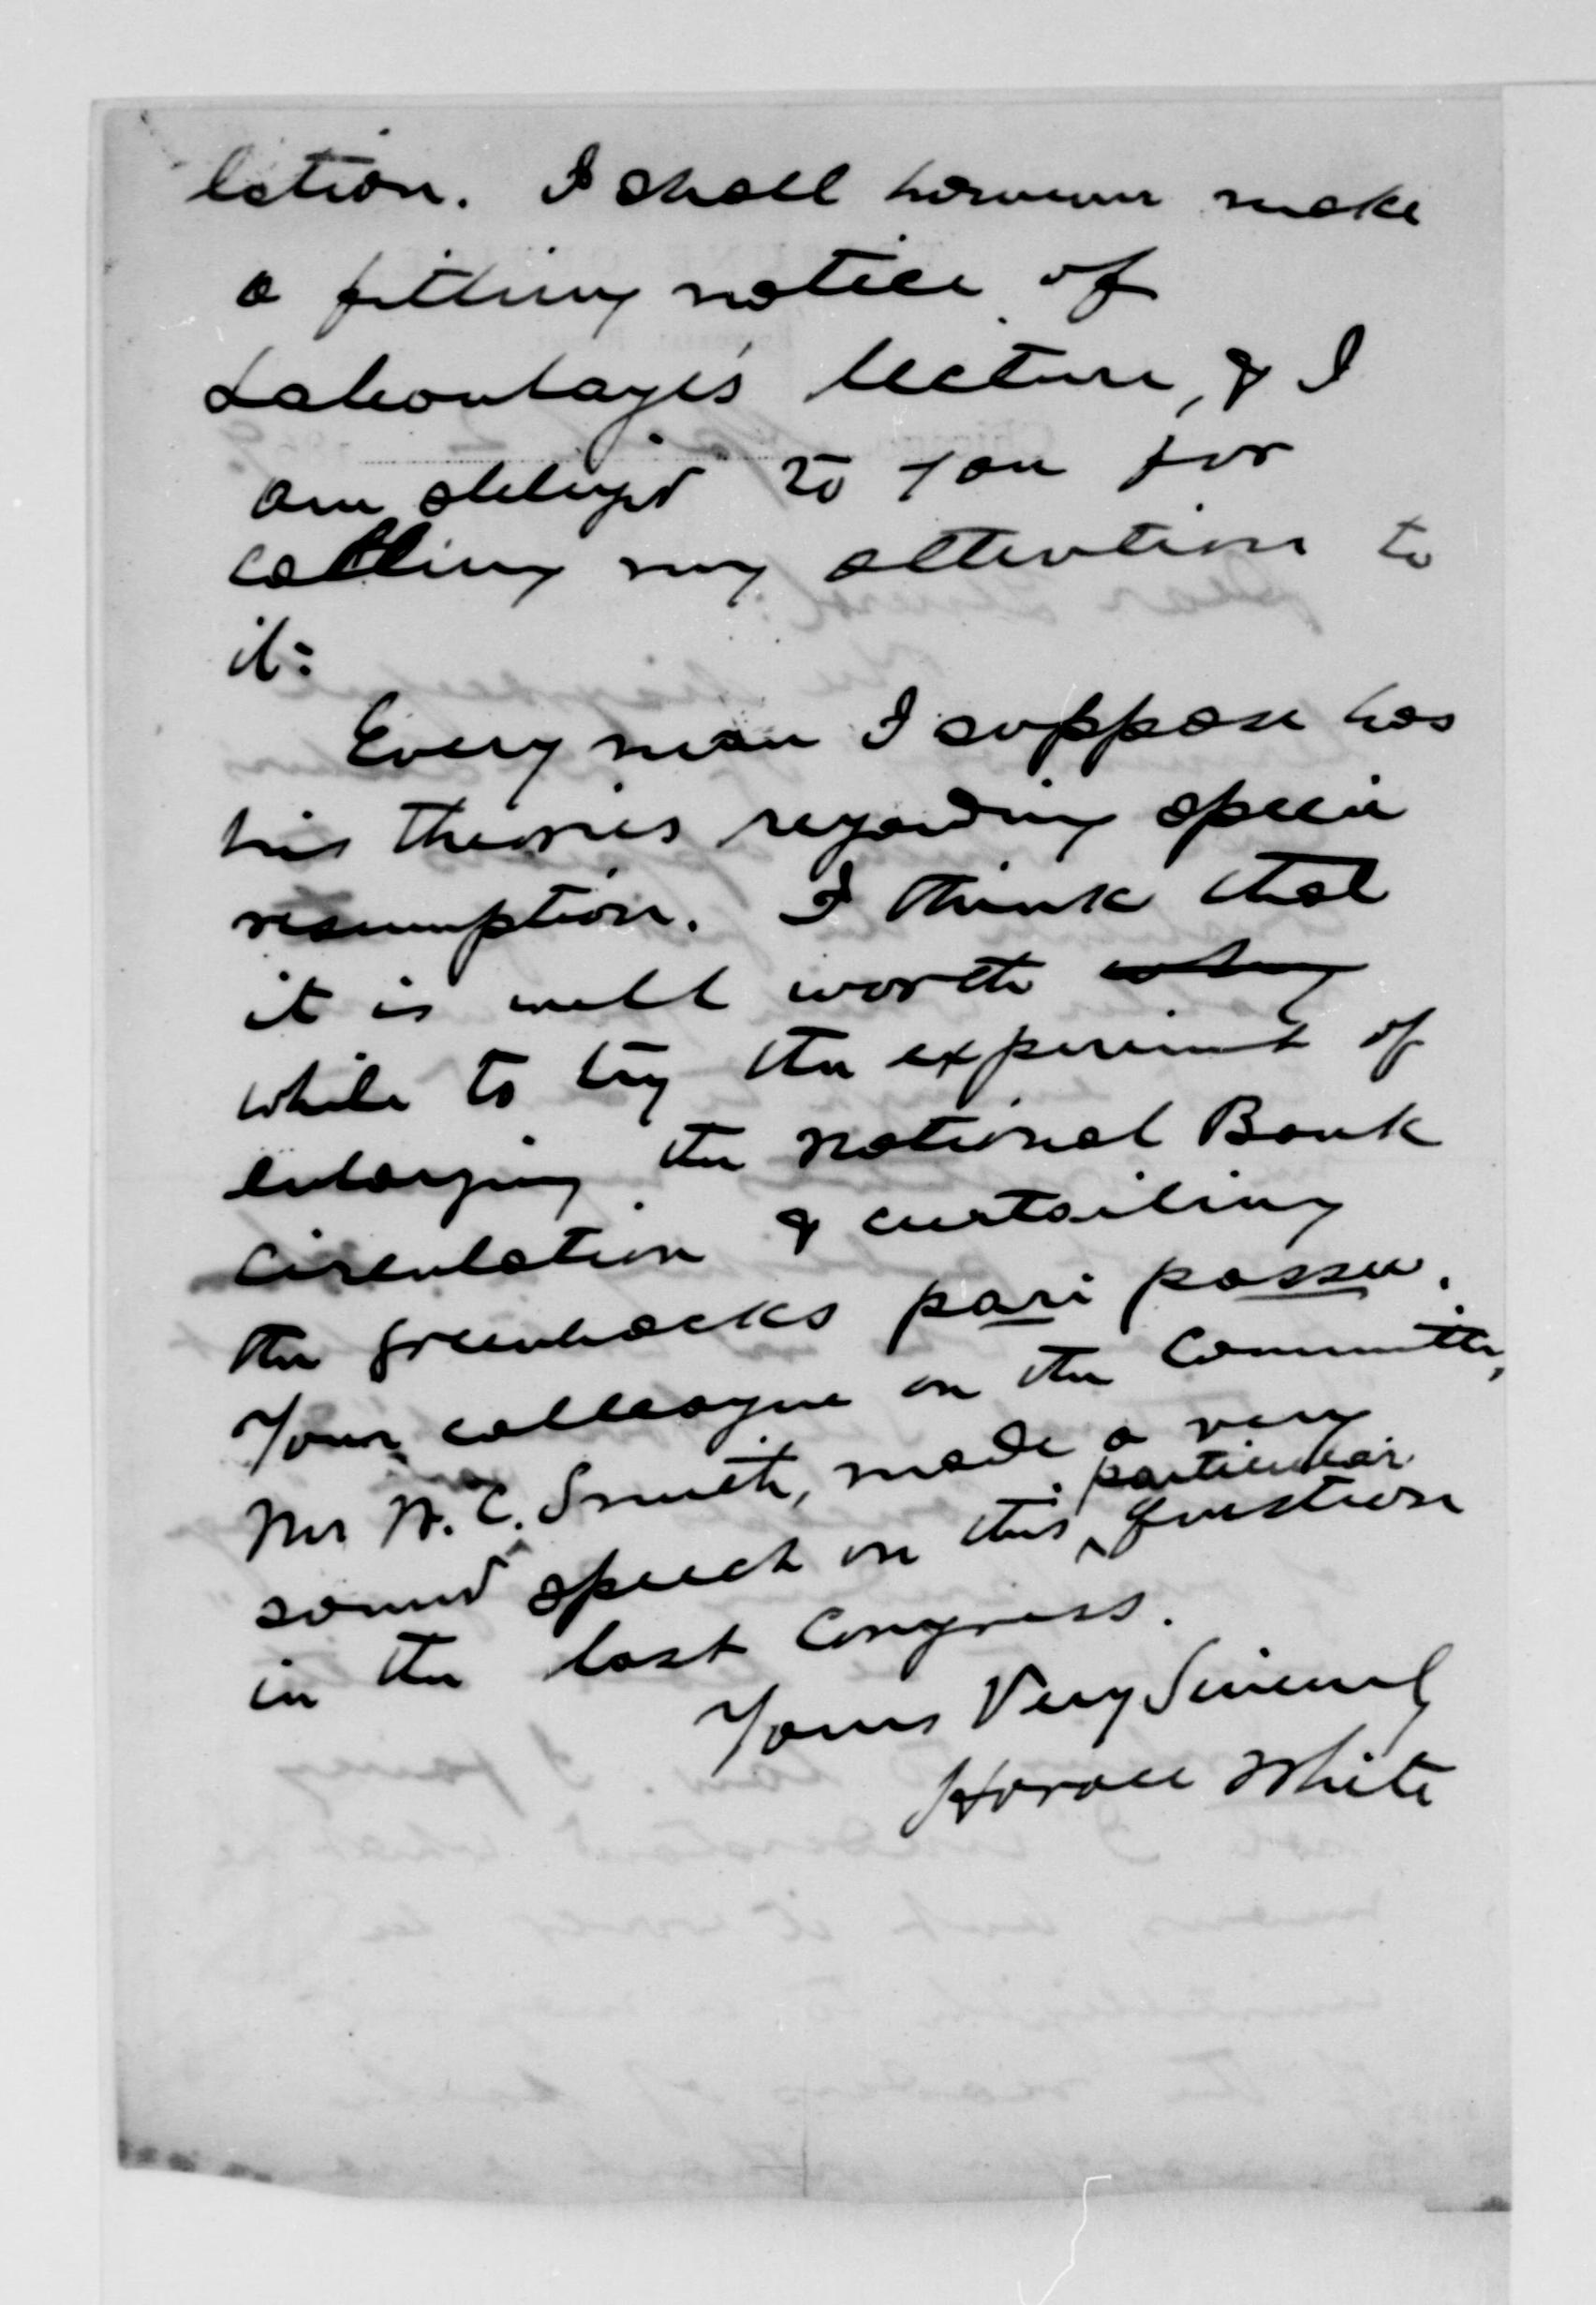 lation. I shall however make
a fitting notice of
Laboulaye's lecture, & I
am obliged to you for
calling my attention to
it.
Every man I suppose has
his theories regarding specie
resumption. I think that
it is well worth
while to try the experiment of
enlarging the National Bank
circulation & curtailing
the greenbacks pari passu.
Your colleague on the Committee,
Mr W. C. Smith, made a very
particular
sound speech on this question
in the last Congress.
Yours Very Sincerely
Horace White